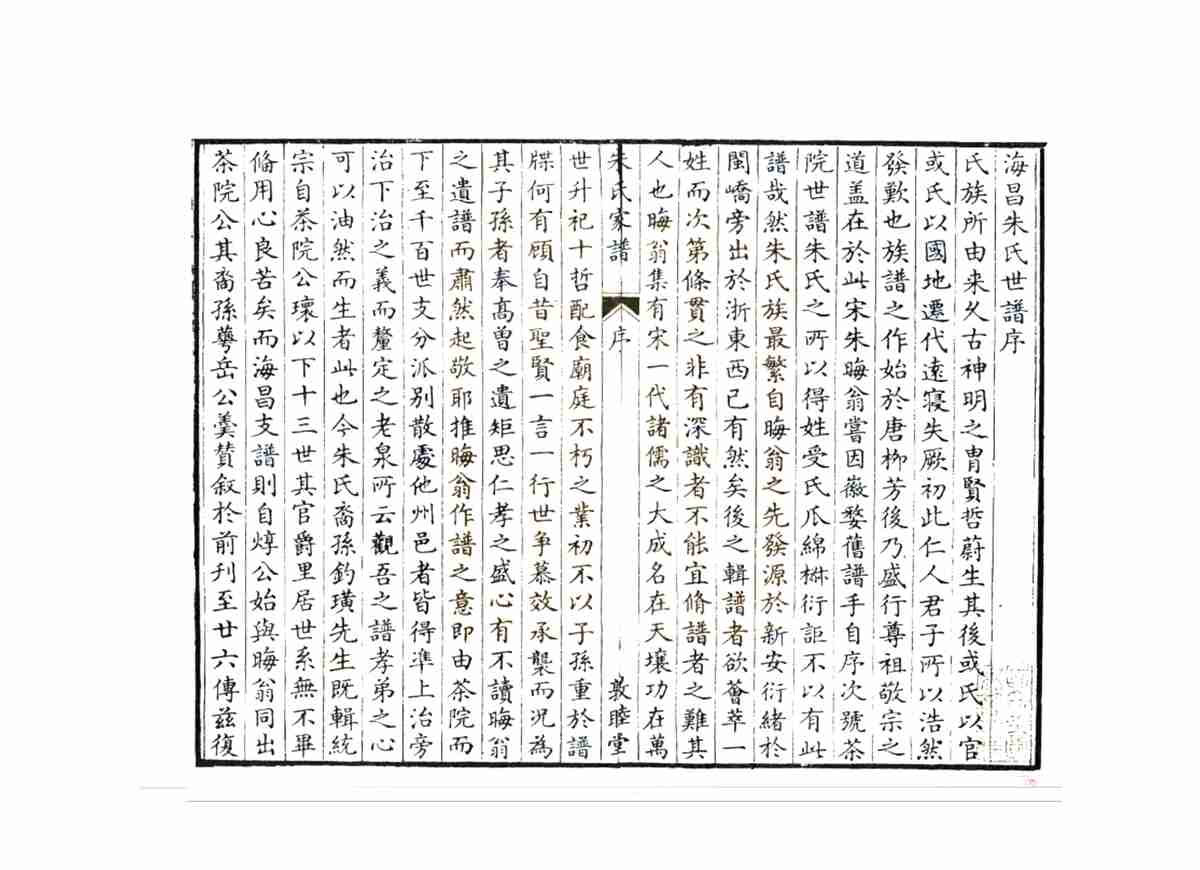 海昌朱氏世譜序
氏族所由来久古神明之胄賢哲蔚生其後或氏以官
或氏以國地遷代逺寝失厥初此仁人君子所以浩然
發歎也族譜之作始於唐栁芳後乃盛行尊祖敬宗之
道盖在於此宋朱晦翁嘗因徽婺舊譜手自序次號茶
院世譜朱氏之所以得姓受氏瓜綿椒衍詎不以有此
譜哉然朱氏族最繁自晦翁之先發源於新安衍緒於
閩嶠旁出於浙東西已有然矣後之輯譜者欲薈萃一
姓而次第條貫之非有深識者不能宜脩譜者之難其
人也晦翁集有宋一代諸儒之大成名在天壤功在萬
朱氏家譜 序 敦睦堂
世升祀十哲配食廟庭不朽之業初不以子孫重於譜
牒何有顧自昔聖賢一言一行世争慕效承襲而况為
其子孫者奉髙曽之遺矩思仁孝之盛心有不讀晦翁
之遺譜而肅然起敬耶推晦翁作譜之意即由茶院而
下至千百世支分派別散處他州邑者皆得凖上治旁
治下治之義而釐定之老泉所云觀吾之譜孝弟之心
可以油然而生者此也今朱氏裔孫釣璜先生既輯統
宗自茶院公瓌以下十三世其官爵里居世系無不畢
俻用心良苦矣而海昌支譜則自焞公始與晦翁同出
茶院公其裔孫蕚岳公羹賛叙於前刋至廿六傳兹復